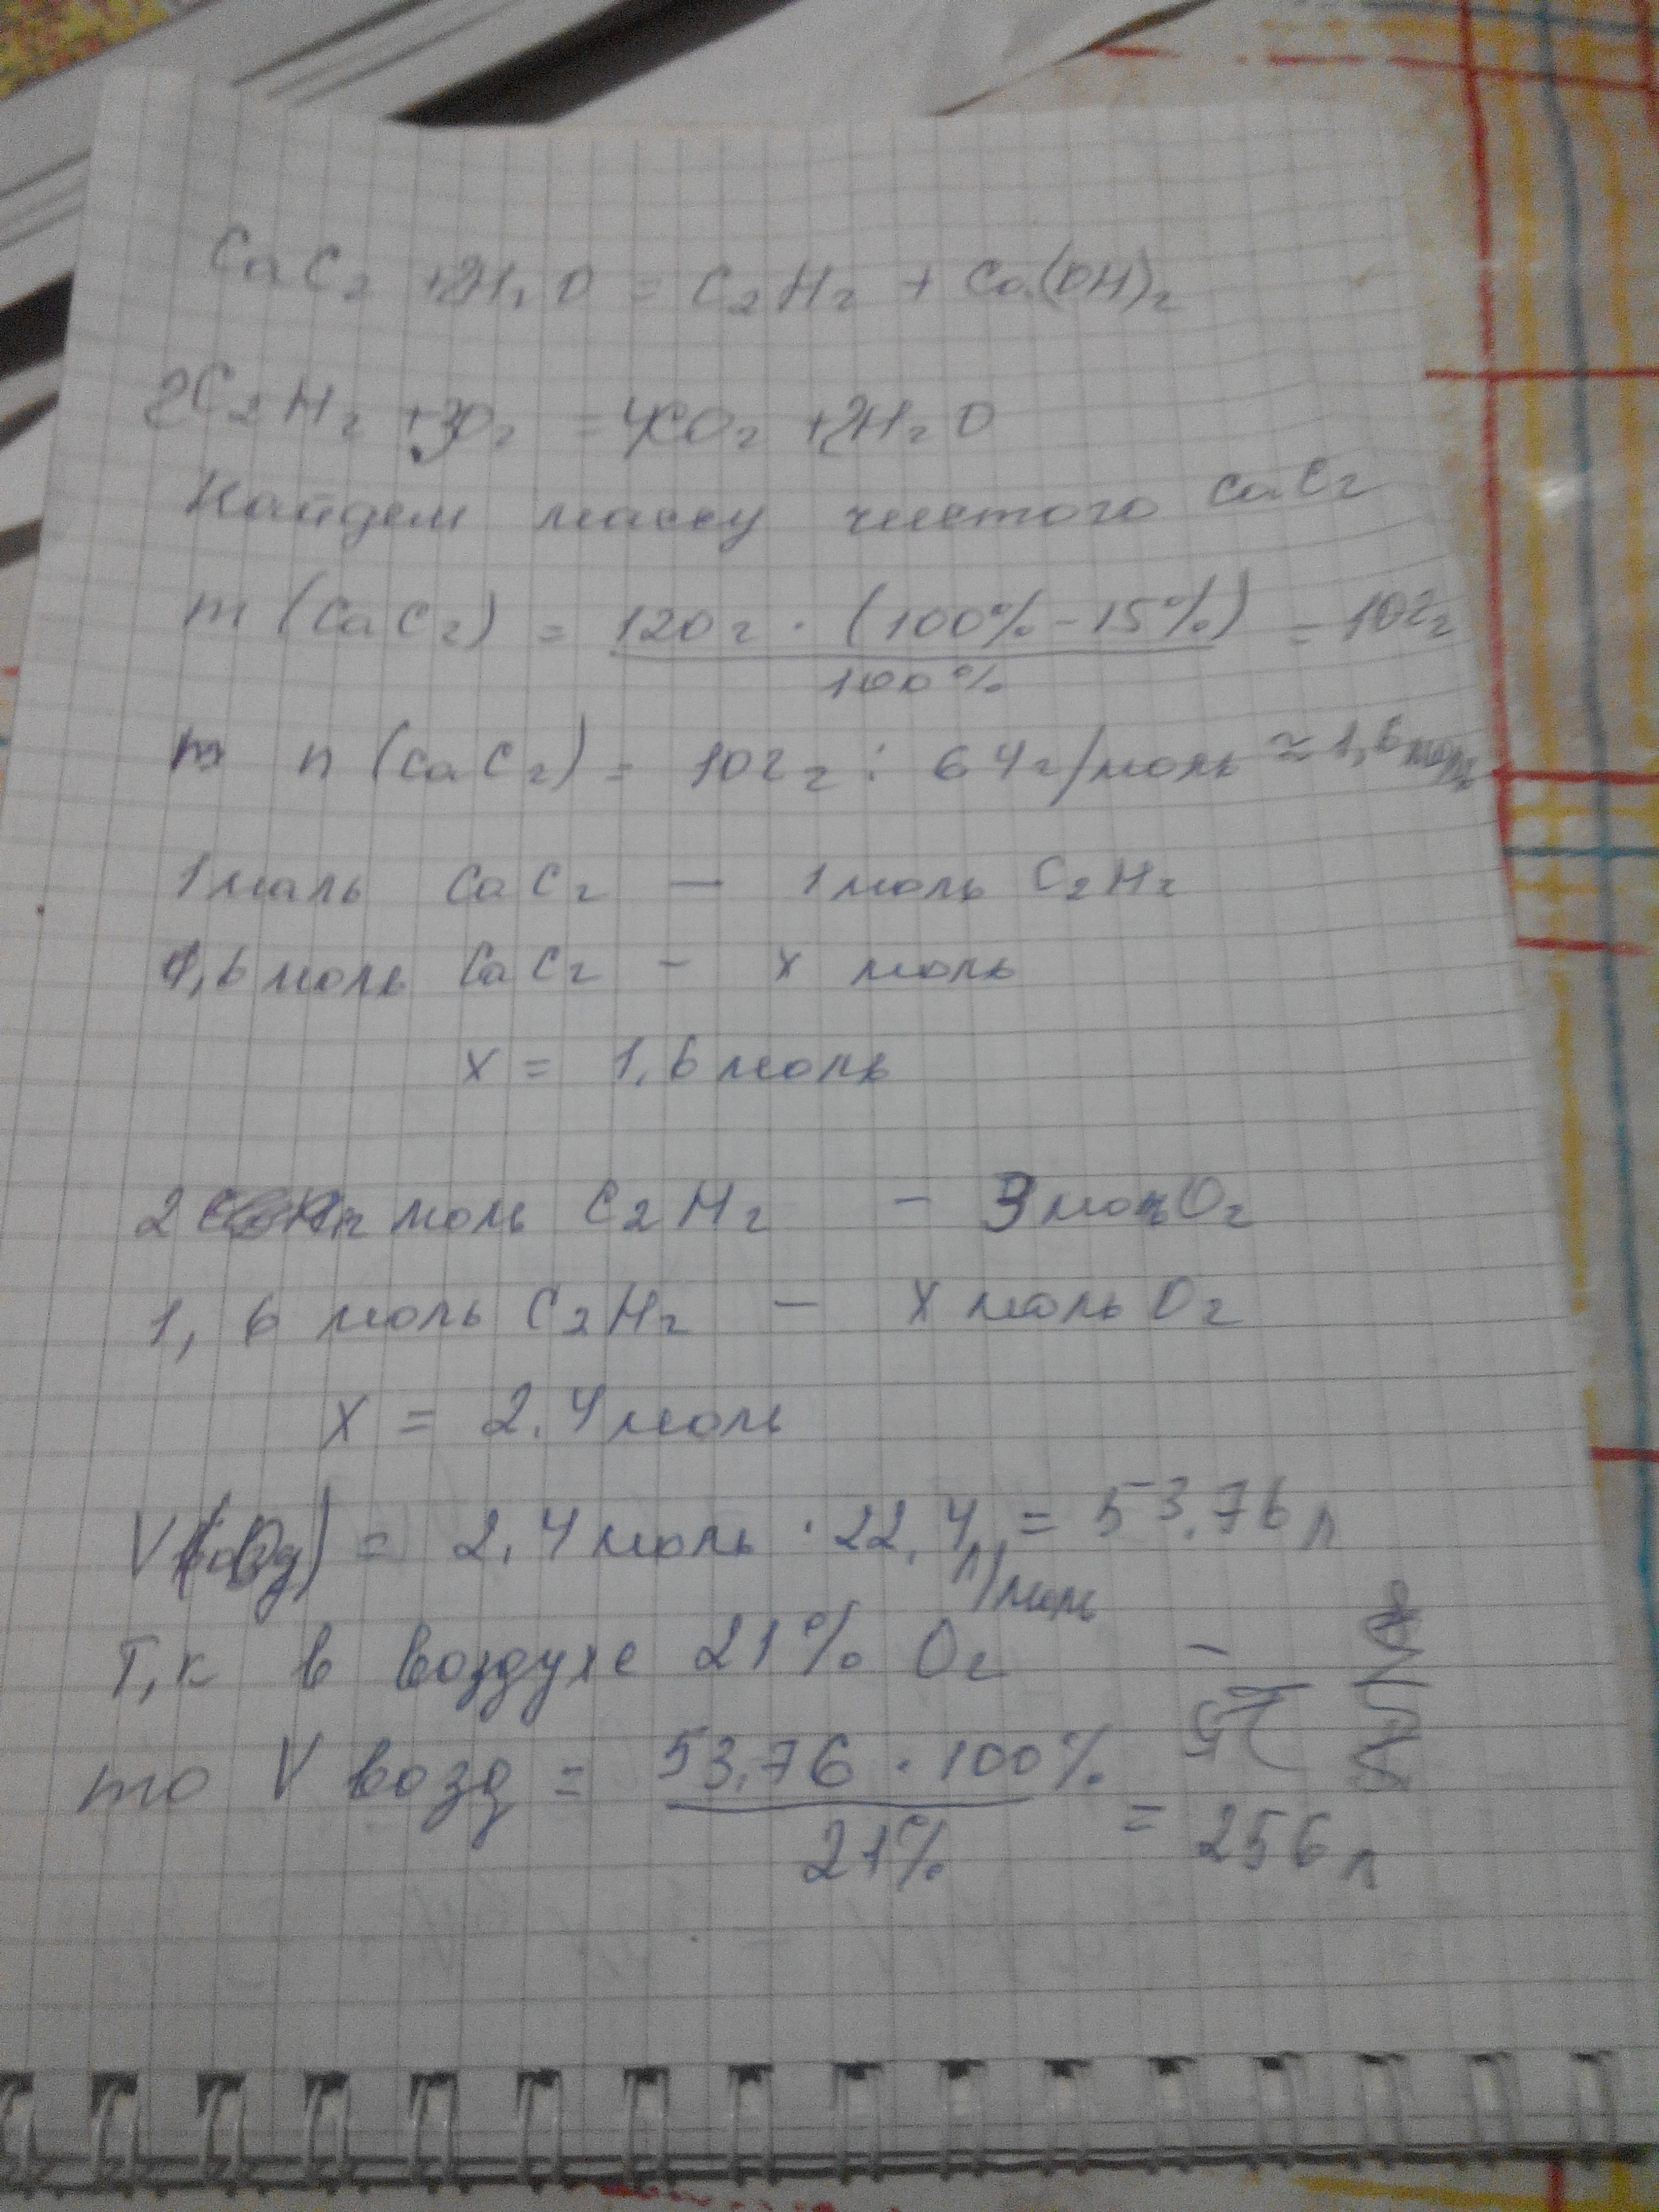 CaC2 +2H2O = C2H2 + Ca(OH)2
2C2H2 +3O2 = 4CO2 +2H2O
Найдем массу чистого CaC2
m (CaC2) = 120г · (100% - 15%) / 100% = 102г
n (CaC2) = 102г : 64г/моль ≈ 1,6 моль
1 моль CaC2 — 1 моль C2H2
1,6 моль CaC2 - x моль
x = 1,6 моль
2 моль C2H2 - 3 моль O2
1,6 моль C2H2 — x моль O2
x = 2.4 моль
V = 2,4 моль · 22,4 л/моль = 53.76 л
Т,к в воздухе 21% O2
то V возд = 53,76 · 100% / 21% = 256 л